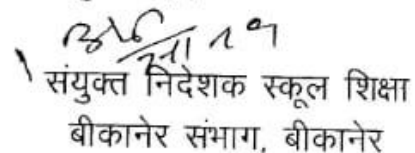 संयुक्त निदेशक स्कूल शिक्षा
बीकानेर संभाग, बीकानेर